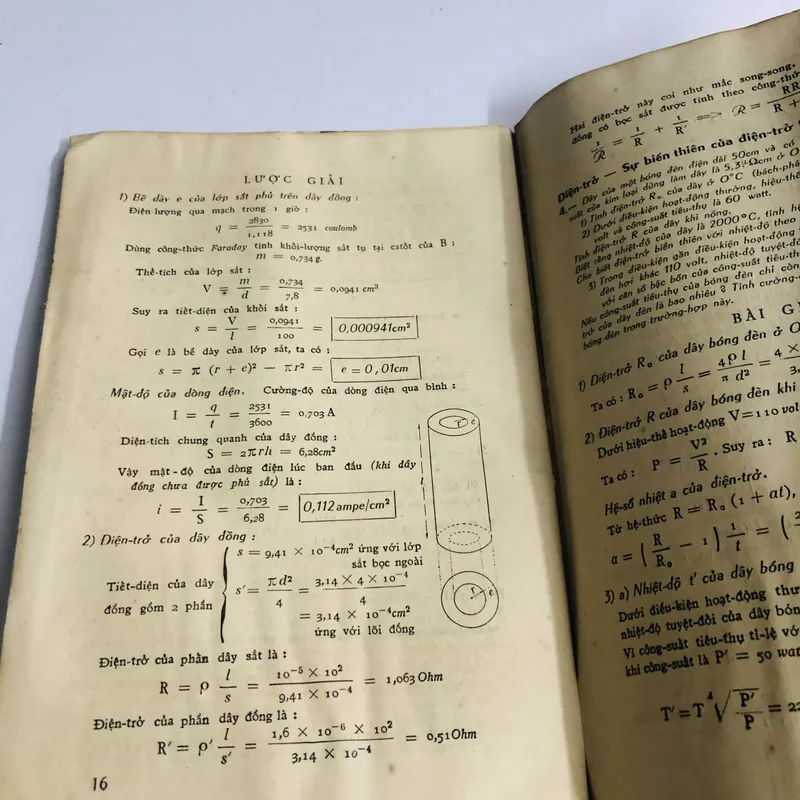 LƯỢC GIẢI
1) Bề dày e của lớp sắt phủ trên dây đồng :
Điện-lượng qua mạch trong 1 giờ :
q = 2830 / 1,118 = 2531 coulomb
Dùng công-thức Faraday tính khối-lượng sắt tụ tại catôt của B :
m = 0,734 g.
Thể-tích của lớp sắt :
V = m / d = 0,734 / 7,8 = 0,0941 cm³
Suy ra tiết-diện của khối sắt :
s = V / l = 0,0941 / 100 = 0,000941cm²
Gọi e là bề dày của lớp sắt, ta có :
s = π (r + e)² − πr² = e = 0,01cm
Mật-độ của dòng điện. Cường-độ của dòng điện qua bình :
I = q / t = 2531 / 3600 = 0,703 A
Diện-tích chung quanh của dây đồng :
S = 2πrh = 6,28cm²
Vậy mật-độ của dòng điện lúc ban đầu (khi dây
đồng chưa được phủ sắt) là :
i = I / S = 0,703 / 6,28 = 0,112 ampe/cm²
2) Điện-trở của dây đồng :
Tiết-diện của dây
đồng gồm 2 phần
s = 9,41 × 10⁻⁴cm² ứng với lớp
sắt bọc ngoài
s' = πd² / 4 = 3,14 × 4 × 10⁻⁴ / 4
= 3,14 × 10⁻⁴cm²
ứng với lõi đồng
r e
r e
l
Điện-trở của phần dây sắt là :
R = ρ l / s = 10⁻⁵ × 10² / 9,41 × 10⁻⁴ = 1,063 Ohm
Điện-trở của phần dây đồng là :
R' = ρ' l / s' = 1,6 × 10⁻⁶ × 10² / 3,14 × 10⁻⁴ = 0,51 Ohm
16
Hai điện-trở này coi như mắc song-song,
đồng có bọc sắt được tính theo công-thức
1 / R = 1 / R + 1 / R' => R = RR / R +
Điện-trở — Sự biến thiên của điện-trở
4.— Dây của một bóng đèn điện dài 50cm và có
suất của kim loại dùng làm dây là 5,3 Ωcm ở O
1) Tính điện-trở R₀ của dây ở O°C (bách-phân
2) Dưới điều-kiện hoạt-động thường, hiệu-thế
volt và công-suất tiêu-thụ là 60 watt.
Tính điện-trở R của dây khi nóng.
Biết rằng nhiệt-độ của dây là 2000°C, tính hệ
Cho biết điện-trở biến thiên với nhiệt-độ theo
3) Trong điều-kiện gần điều-kiện hoạt-động
đèn hơi khác 110 volt, nhiệt-độ tuyệt-đố
với căn số bậc bốn của công-suất tiêu-thụ
Nếu công-suất tiêu-thụ của bóng đèn chỉ còn
trở của dây đèn là bao nhiêu ? Tính cường-
bóng đèn trong trường-hợp này.
BÀI G
1) Điện-trở R₀ của dây bóng đèn ở O
Ta có : R₀ = ρ l / s = 4ρl / π d² = 4 × / 3,
2) Điện-trở R của dây bóng đèn khi
Dưới hiệu-thế hoạt-động V = 110 vol
Ta có : P = V² / R . Suy ra : R
Hệ-số nhiệt a của điện-trở.
Từ hệ-thức R = R₀ (1 + at),
a = ( R / R₀ − 1 ) 1 / t = (
3) a) Nhiệt-độ t' của dây bóng
Dưới điều-kiện hoạt-động thư
nhiệt-độ tuyệt-đối của dây bón
Vì công-suất tiêu-thụ tỉ-lệ vớ
khi công-suất là P' = 50 wat
T' = T ⁴√ P' / P = 22